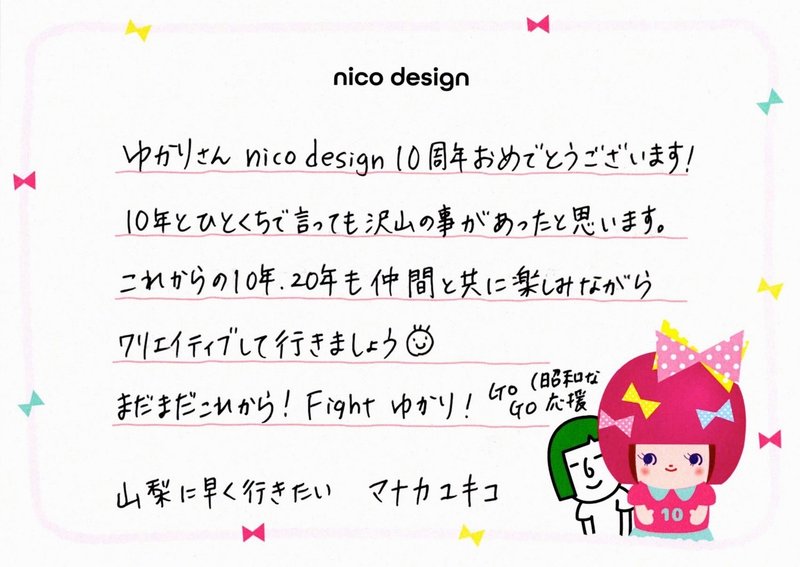 nico design
ゆかりさん nico design 10周年おめでとうございます!
10年とひとくちで言っても沢山の事があったと思います。
これからの10年.20年も仲間と共に楽しみながら
クリエイティブして行きましょう
まだまだこれから! Fight ゆかり! Go Go (昭和な応援
山梨に早く行きたい マナカユキコ
10